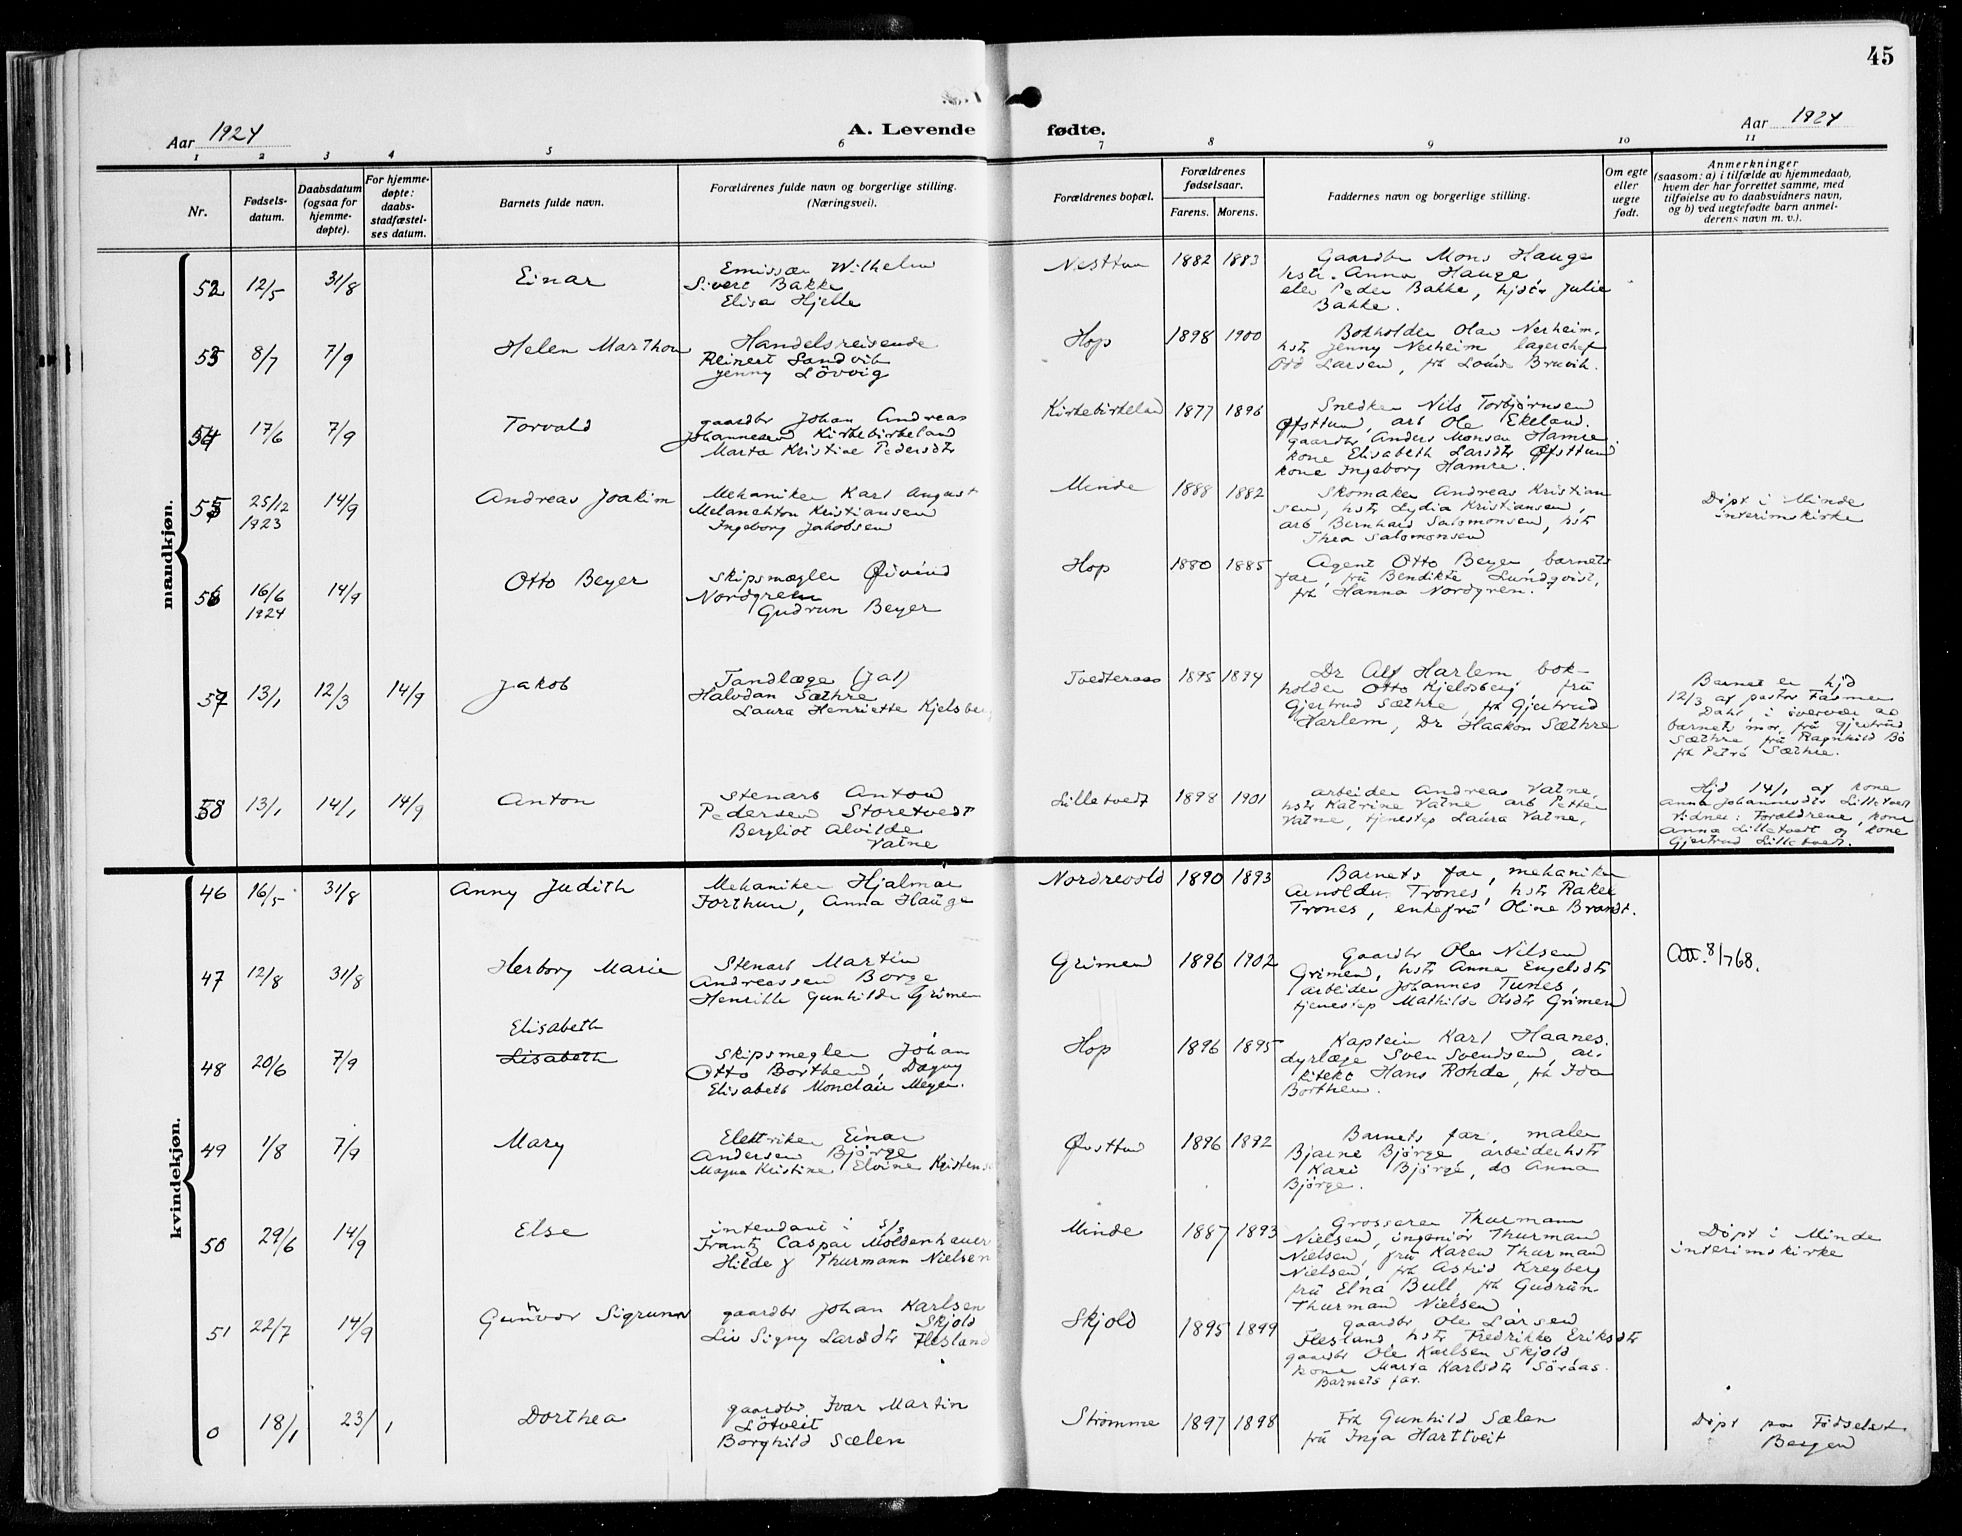 45
Aar 1924
A. Levende fødte.
Aar 1924
1 2 3 4 5 6 7 8 9 10 11
Nr.
Fødsels-
datum.
Daabsdatum
(ogsaa for
hjemme-
døpte).
For hjemme-
døpte:
daabs-
stadfæstel-
ses datum.
Barnets fulde navn.
Forældrenes fulde navn og borgerlige stilling.
(Næringsvei).
Forældrenes bopæl.
Forældrenes
fødselsaar.
Farens. Morens.
Faddernes navn og borgerlige stilling.
Om egte
eller
uegte
født.
Anmerkninger
(saasom: a) i tilfælde av hjemmedaab,
hvem der har forrettet samme, med
tilføielse av to daabsvidners navn,
og b) ved uegtefødte barn anmel-
derens navn m. v.).
mandkjøn.
52 12/5 31/8 Einar
Emissær Wilhelm
Sivert Bakke
Elisa Hjelle
Nesttun 1882 1883
Gaardbr Mons Hauge
hstr. Anna Hauge,
elev Peder Bakke, hjdtr Julie
Bakke.
53 8/7 7/9 Helen Marthon
Handelsreisende
Reinert Sandvik
Jenny Lövvig
Hop 1898 1900
Bokholder Olav Nerheim,
hstr Jenny Nerheim lagerchef
Odd Larsen, frk Louise Bruvik.
54 17/6 7/9 Torvald
gaardbr Johan Andreas
Johannesen Kirkebirkeland
Marta Kristine Pedersdtr
Kirkebirkeland 1877 1896
Snedker Nils Torbjørnsen
Øfsttun, arb Ole Ekeland.
gaardbr Anders Monsen Hamre.
kone Elisabeth Larsdtr Øfsttund
kone Ingeborg Hamre.
55 25/12 1923 14/9 Andreas Joakim
Mekaniker Karl August
Melanchton Kristiansen
Ingeborg Jakobsen
Minde 1888 1882
Skomaker Andreas Kristian
sen, hstr Lydia Kristiansen,
arb. Bernhard Salomonsen, hstr
Thea Salomonsen
Døpt i Minde
interimskirke
56 16/6 1924 14/9 Otto Beyer
Skipsmægler Øivind
Nordgren
Gudrun Beyer
Hop 1880 1885
Agent Otto Beyer, barnets
far, frü Bendikte Lundqvist,
frk Hanna Nordgren.
57 13/1 12/3 14/9 Jakob
Tandlæge (Jal)
Halvdan Sæthre
Laura Henriette Kjelsberg
Tvedteraas 1895 1894
Dr Alf Harlem bok-
holder Otto Kjelsberg, frü
Gjertrud Sæthre, frk Gjertrud
Harlem, Dr Haakon Sæthre
Barnet er hjd
12/3 af pastor Fasmer
Dahl i overvær av
barnets mor, frü Gjertrud
Sæthre frü Ragnhild Bö
frk Petra Sæthre.
58 13/1 14/1 14/9 Anton
Stenarb Anton
Pedersen Storetvedt
Bergliot Alvilde
Vatne
Lilletvedt 1898 1901
arbeider Andreas Vatne,
hstr Katrine Vatne arb Petter
Vatne, tjenestep Laura Vatne.
Hjd 14/1 af kone
Anna Johannesdtr Lilletvedt
Vidner: Forældrene, kone
Anna Lilletvedt og kone
Gjertrud Lilletvedt.
kvindekjøn.
46 16/5 31/8 Anny Judith
Mekaniker Hjalmar
Forthun, Anna Hauge
Nordrevold 1890 1893
Barnets far, mekaniker
Arnoldus Trones, hstr Rakel
Trones, enkefrü Oline Brandt.
47 12/8 31/8 Herborg Marie
Stenarb Martin
Andreassen Borge
Henrikke Gunhilde Grimen
Grimen 1896 1902
Gaardbr Ole Nilsen
Grimen, hstr Anna Engelsdtr
arbeider Johannes Tunes,
tjenestep Mathilde Olsdtr Grimen
Att. 8/7 68.
48 20/6 7/9 Elisabeth
Lisabeth
Skipsmegler Johan
Otto Borthen, Dagny
Elisabeth Monclair Meyer.
Hop 1896 1895
Kaptein Karl Haanes.
dyrlæge Sven Svendsen, ar-
kitekt Hans Rohde, frk Ida
Borthen.
49 1/8 7/9 Mary
Elektriker Einar
Andersen Bjørge
Magna Kristine Elvine Kristensen
Øvsttun 1896 1892
Barnets far, maler
Bjarne Bjørge, arbeiderhstr
Kari Bjørge, do Anna
Bjørge.
50 29/6 14/9 Else
intendant i s/s
Frantz Caspar Moldenhauer
Hilde f Thurmann Nielsen
Minde 1887 1893
Grosserer Thurmann
Nielsen, ingeniør Thurman
Nielsen, frü Karen Thurman
Nielsen, frk Astrid Kreyberg
frü Elna Bull, frk Gudrün
Thurman Nielsen
Døpt i Minde
interimskirke
51 22/7 14/9 Gunvor Sigrunn
gaardbr Johan Karlsen
Skjold
Liv Signy Larsdtr Flesland
Skjold 1895 1899
gaardbr Ole Larsen
Flesland, hstr Fredrikke Eriksdtr
gaardbr Ole Karlsen Skjold
kone Marta Karlsdtr Söraas.
Barnets far.
0 18/1 23/1 Dorthea
gaardbr Ivar Martin
Lötveit
Borghild Sælen
Strømme 1897 1898
Frk Gunhild Sælen
frü Inga Harttveit
Døpt paa Fødselsst
Bergen